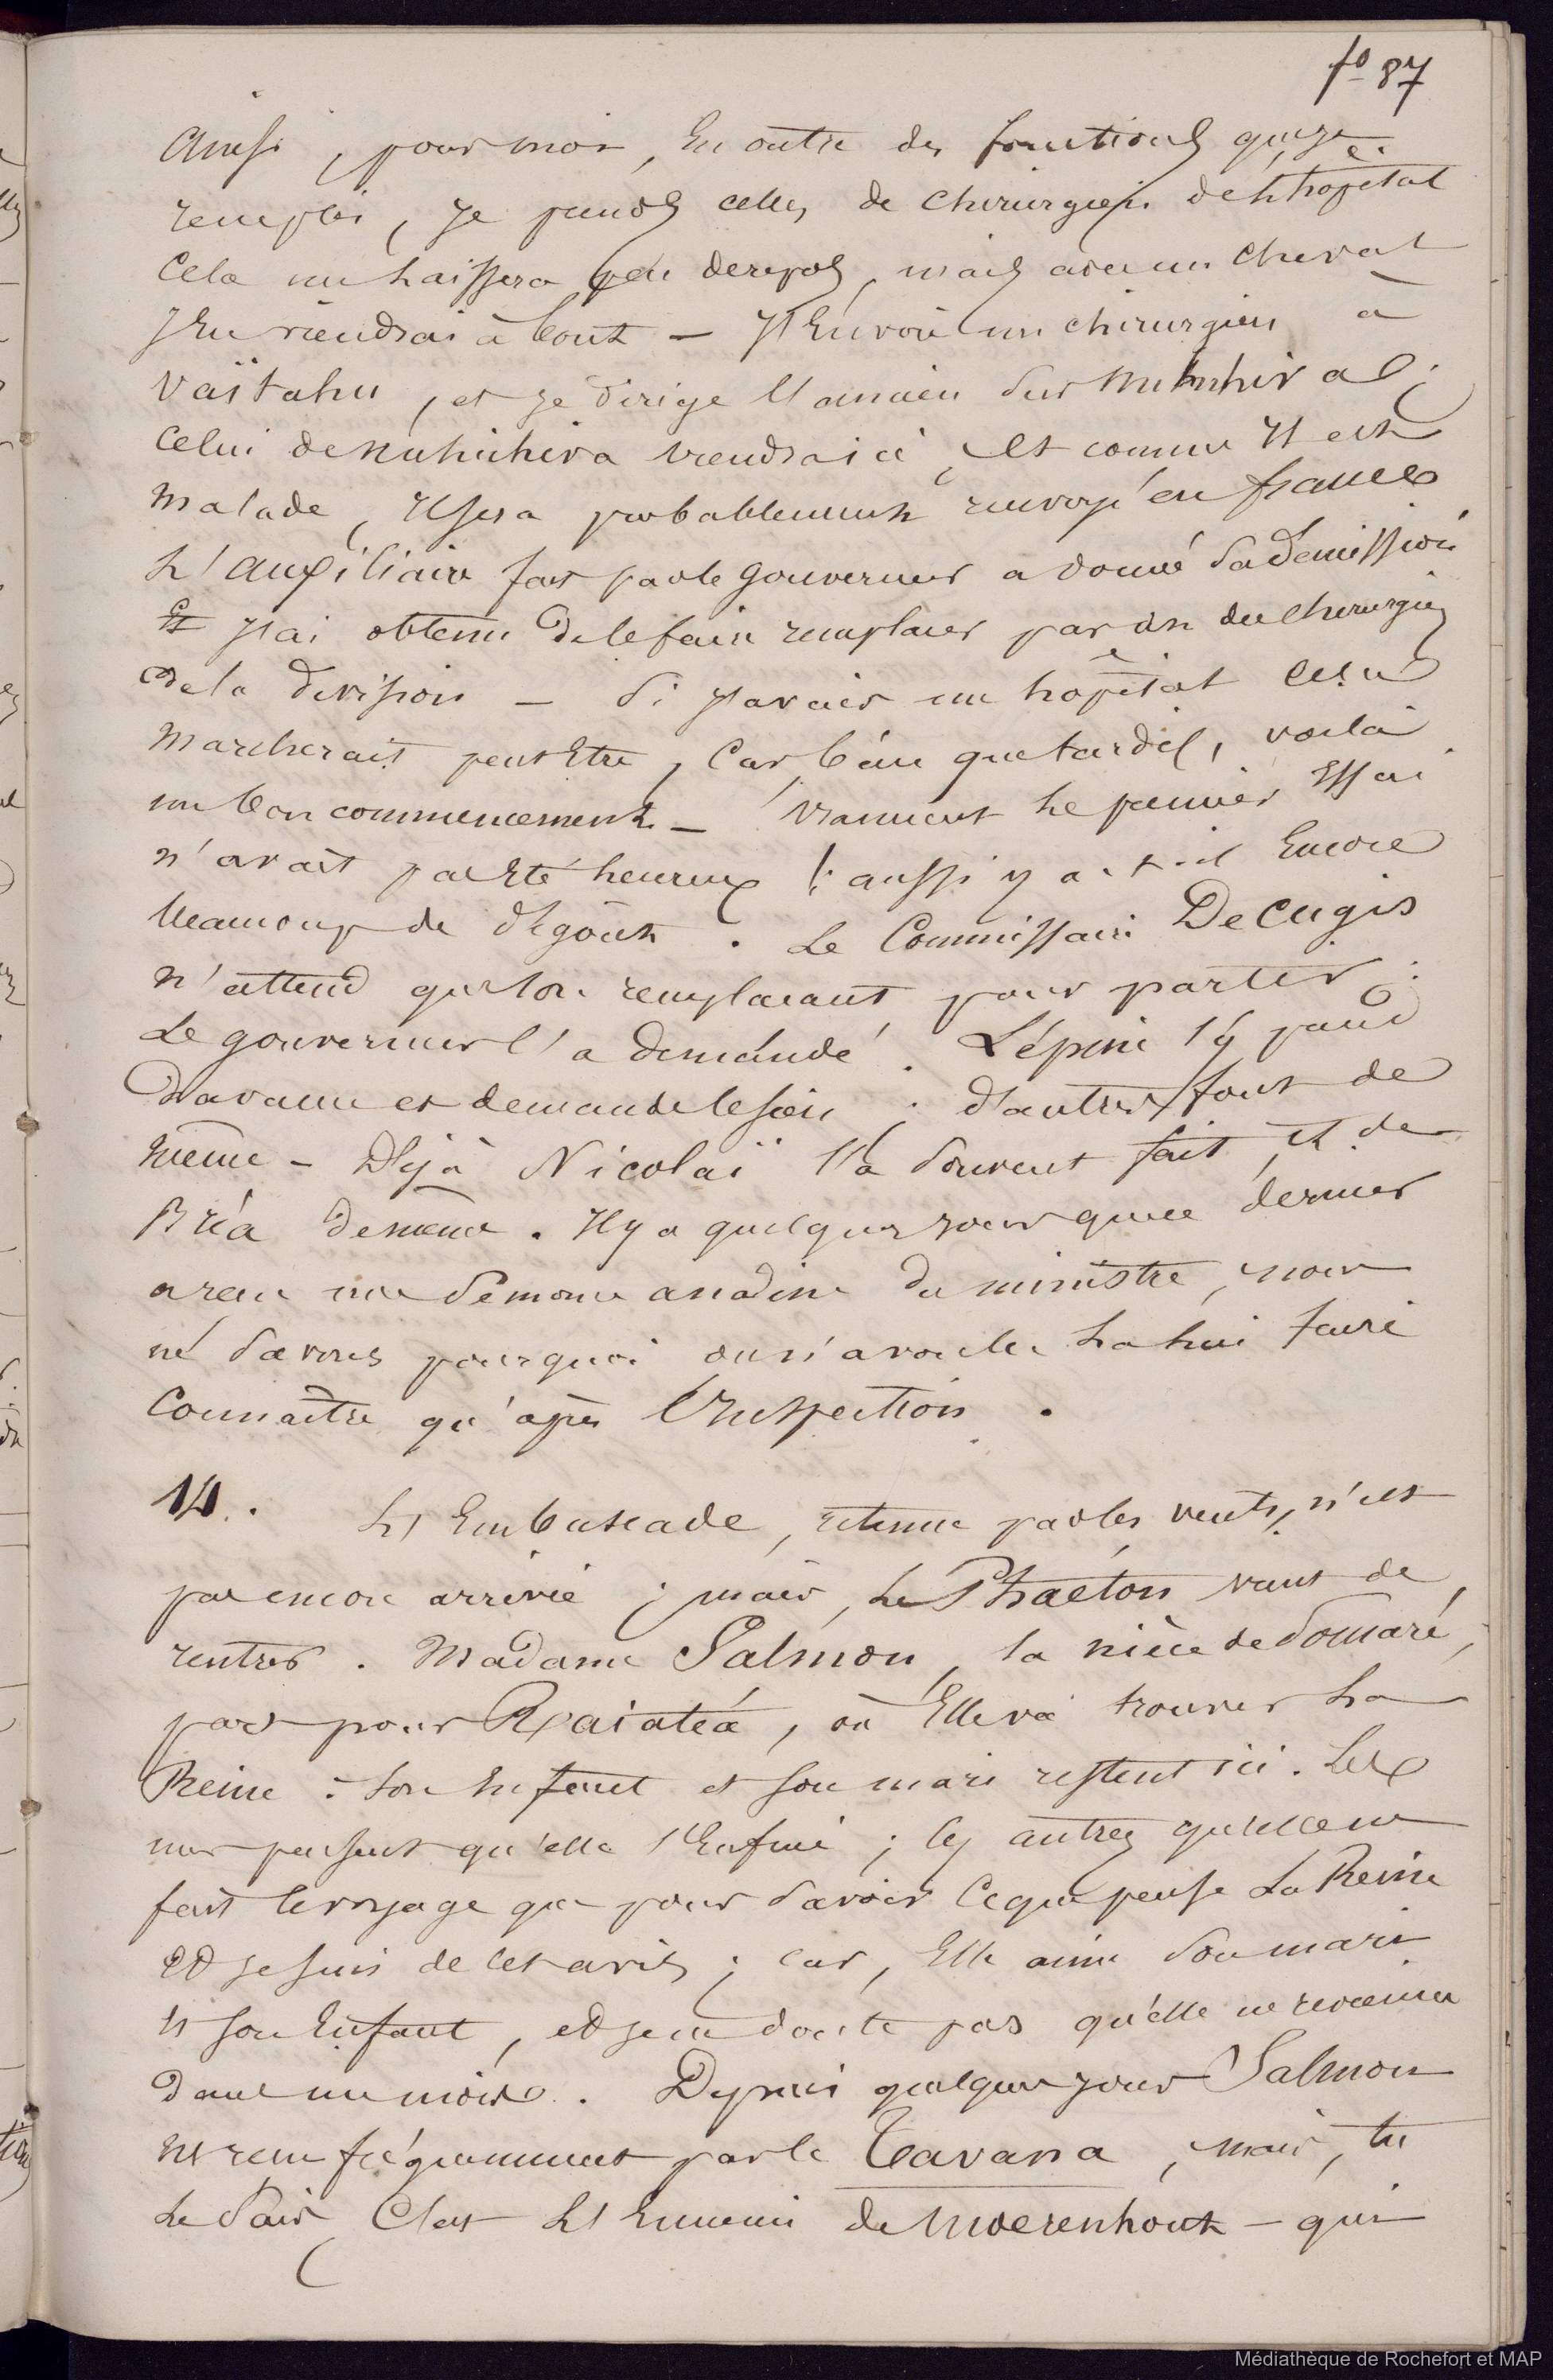 fo 87
Ainsi, pour moi, En outre des fonctions que je
remplis, je prends celles de chirurgien de l'hopital
Cela me laissera peu de repos, mais avec un cheval
J'En viendrai à bout — J'Envoie un chirurgien à
Vaïtahu, et je dirige l'ancien sur Nuhuhiva;
Celui de nuhuhiva viendra ici, Et comme Il est
malade, Il sera probablement renvoyé en france
L'auxiliaire fait par le gouverneur a donné sa démission
Et J'ai obtenu de le faire remplacer par un des chirurgiens
de la division — Si J'avais un hopital cela
Marcherait peut Etre, Car bien que tardif, voilà
un bon commencement — Vraiment le premier Essai
n'avait pas Eté heureux ! aussi y a-t-il Encore
beaucoup de dégoût. Le Commissaire De Cugis
n'attend que son remplacant pour partir :
Le gouverneur l'a demandé. L'épine s'y prend
d'avance et demande le sien ; d'autres font de
même — Déjà Nicolaï l'a souvent fait, et de
Bréa de même. Il y a quelques jours que ce dernier
a recu une semonce anodine du ministre, nous
ne savons pourquoi on n'a voulu la lui faire
Connaître qu'après l'Inspection.
14. L'Embuscade, retenue par les vents, n'est
pas encore arrivée ; mais, le Phaéton vient de
rentrer. Madame Salmon, la nièce de Pomaré,
part pour Raiatéa, où Elle va trouver La
Reine : son Enfant et son mari restent ici. Les
uns pensent qu'elle s'Enfuie ; les autres qu'elle ne
fait le voyage que pour savoir ce que pense La Reine
Et je suis de cet avis ; car, Elle aime son mari
Et son Enfant, et je ne doute pas qu'elle ne revienne
dans un mois. Depuis quelques jours Salmon
est recu fréquemment par le Tavana, mais, tu
le sais, C'est L'Ennemi de Moerenhout — qui
Médiathèque de Rochefort et MAP